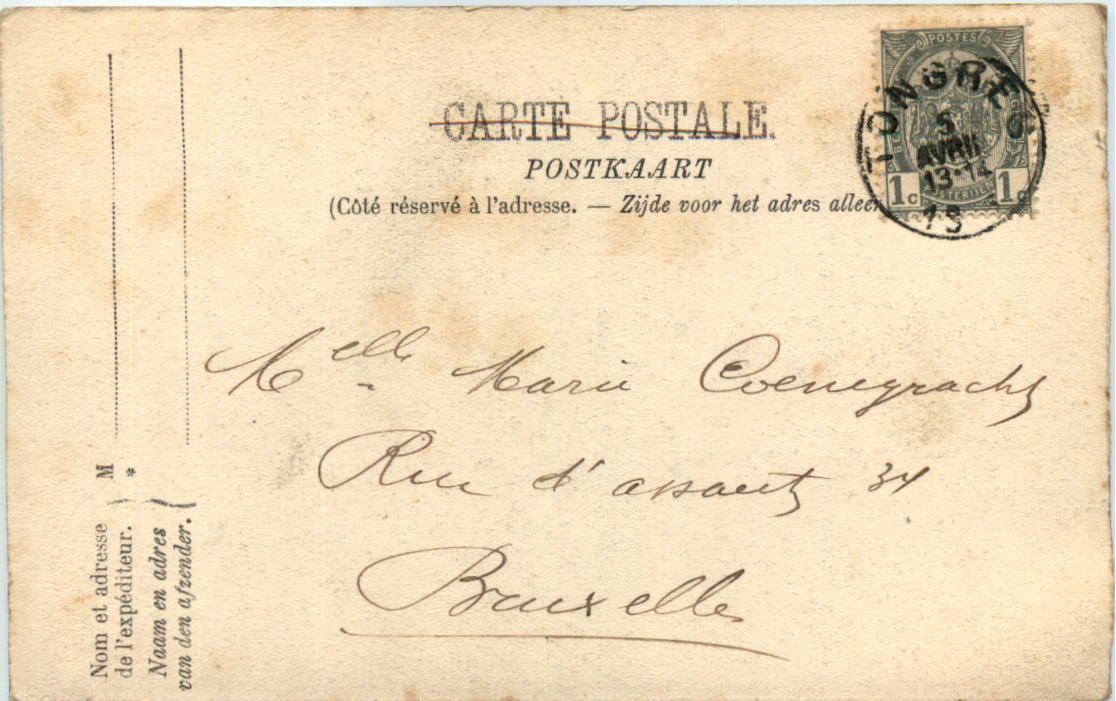 CARTE POSTALE.
POSTKAART
(Côté réservé à l'adresse. — Zijde voor het adres alleen
POSTES
1c 1c
TONGRES
5
AVRIL
13-14
Melle Marie Coenegrachts
Rue d'assaut 34
Bruxelles
Nom et adresse
de l'expéditeur. } M
Naam en adres *
van den afzender. {